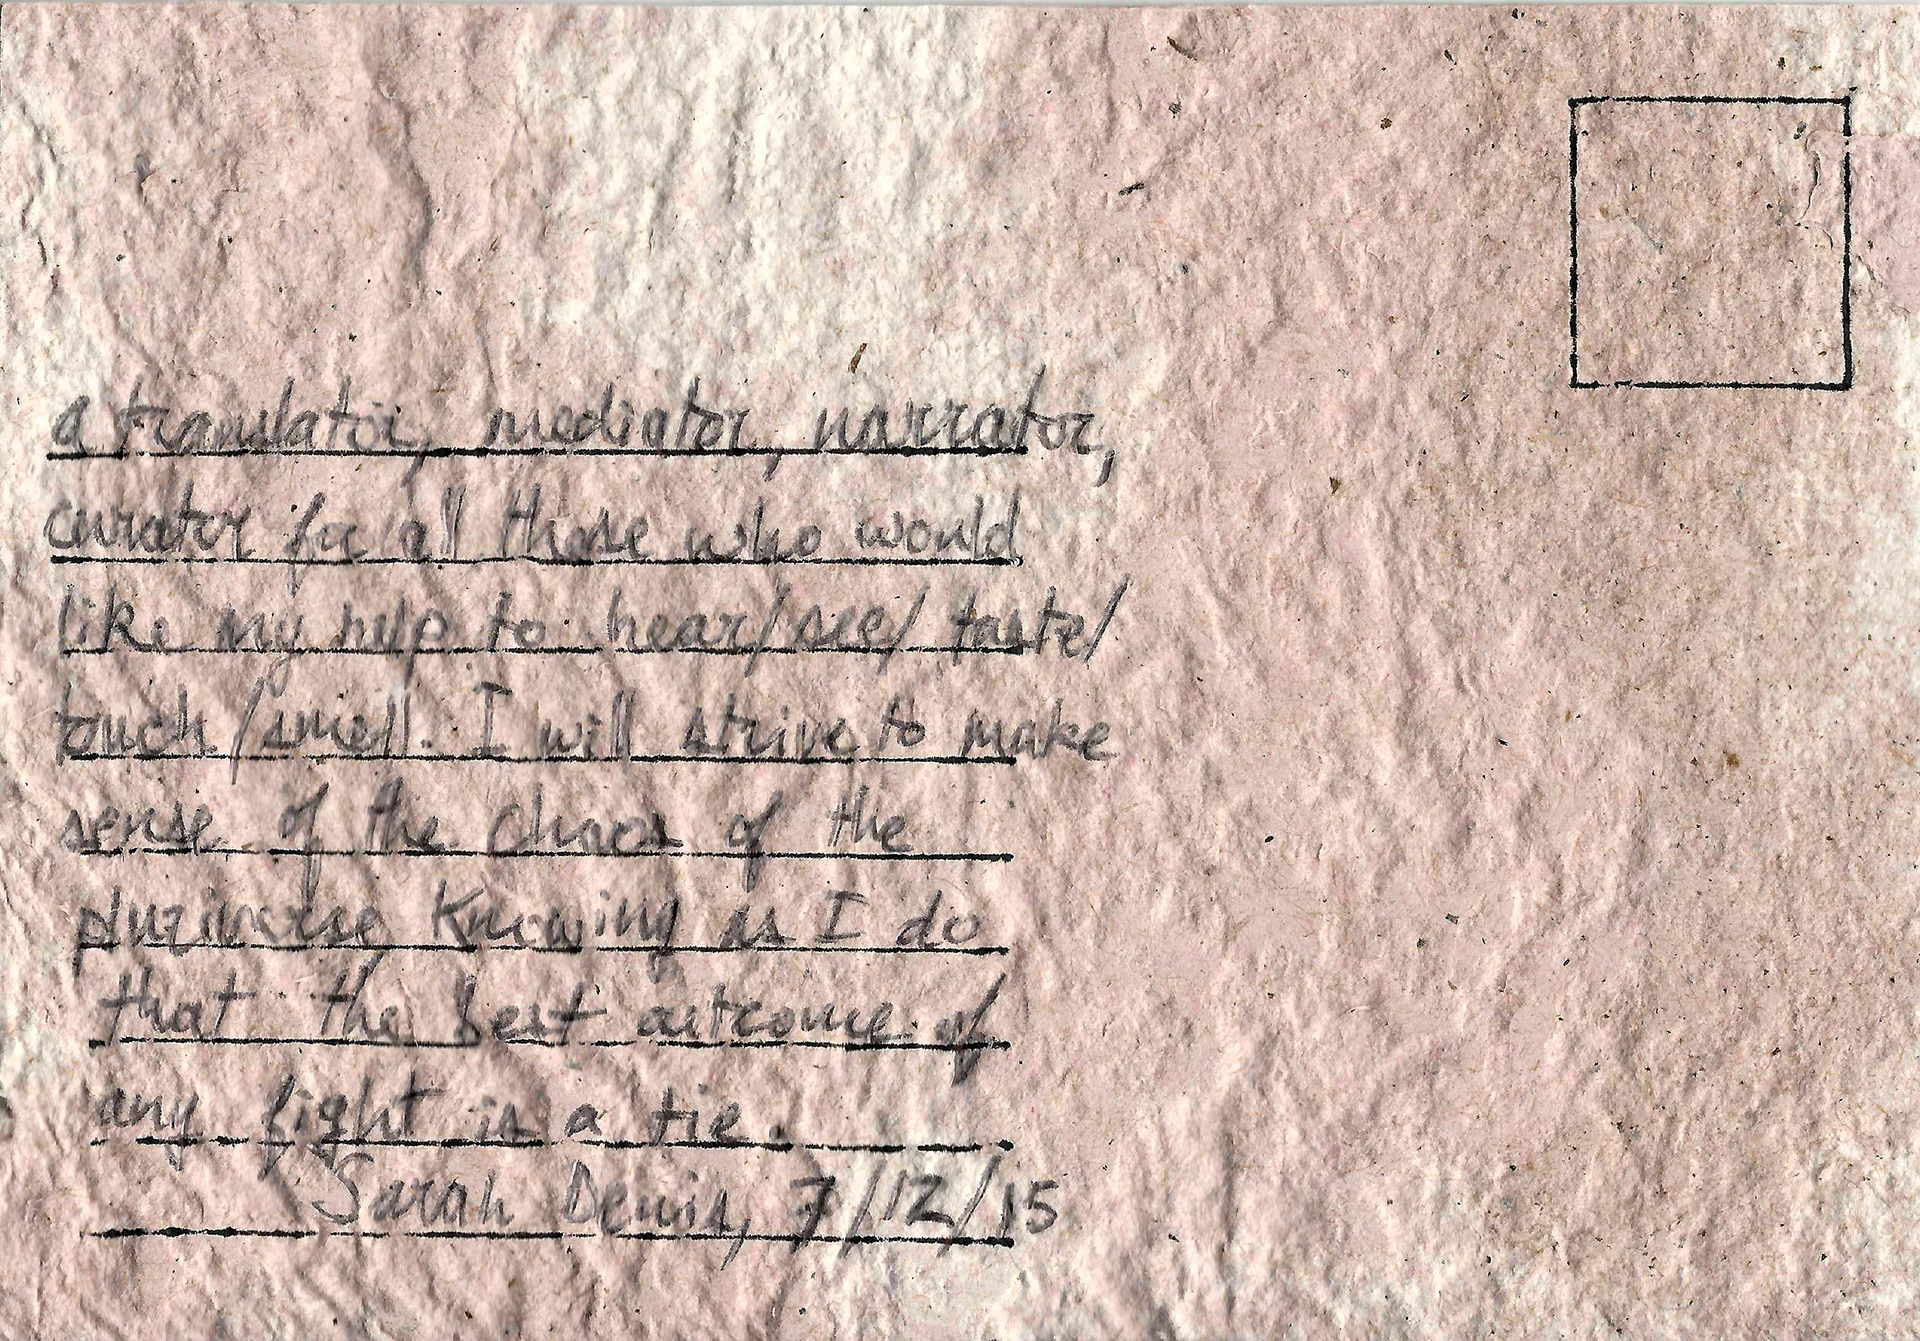 a translator, mediator, narrator,
curator for all those who would
like my help to hear/see/taste/
touch/smell. I will strive to make
sense of the chaos of the
pluriverse knowing as I do
that the best outcome of
any fight is a tie.
Sarah Denis, 7/12/15